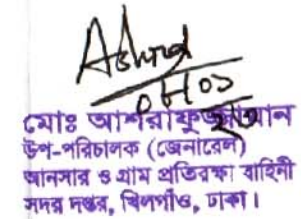 মোঃ আশরাফুজ্জামান
উপ-পরিচালক (জেনারেল)
আনসার ও গ্রাম প্রতিরক্ষা বাহিনী
সদর দপ্তর, খিলগাঁও, ঢাকা।